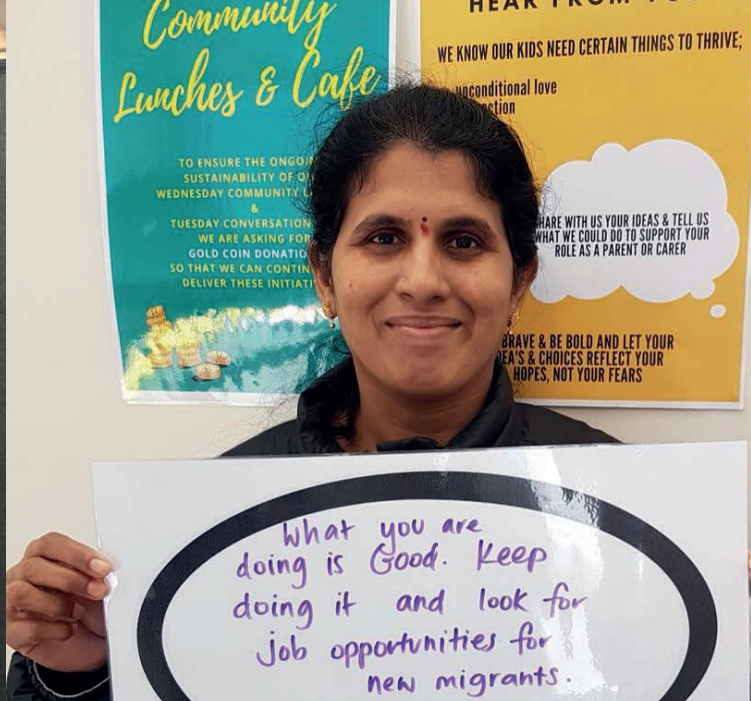 Community
Lunches & Cafe
TO ENSURE THE
SUSTAINABILITY OF
WEDNESDAY COMMUNITY
&
TUESDAY CONVERSATION
WE ARE ASKING FOR
GOLD COIN
SO THAT WE CAN
DELIVER THESE
HEAR FROM
WE KNOW OUR KIDS NEED CERTAIN THINGS TO THRIVE;
unconditional love
WITH US YOUR IDEAS & TELL US
WHAT WE COULD DO TO SUPPORT YOUR
ROLE AS A PARENT OR CARER
BRAVE & BE BOLD AND LET YOUR
& CHOICES REFLECT YOUR
HOPES, NOT YOUR FEARS
What you are
doing is Good. Keep
doing it and look for
job opportunities for
new migrants.